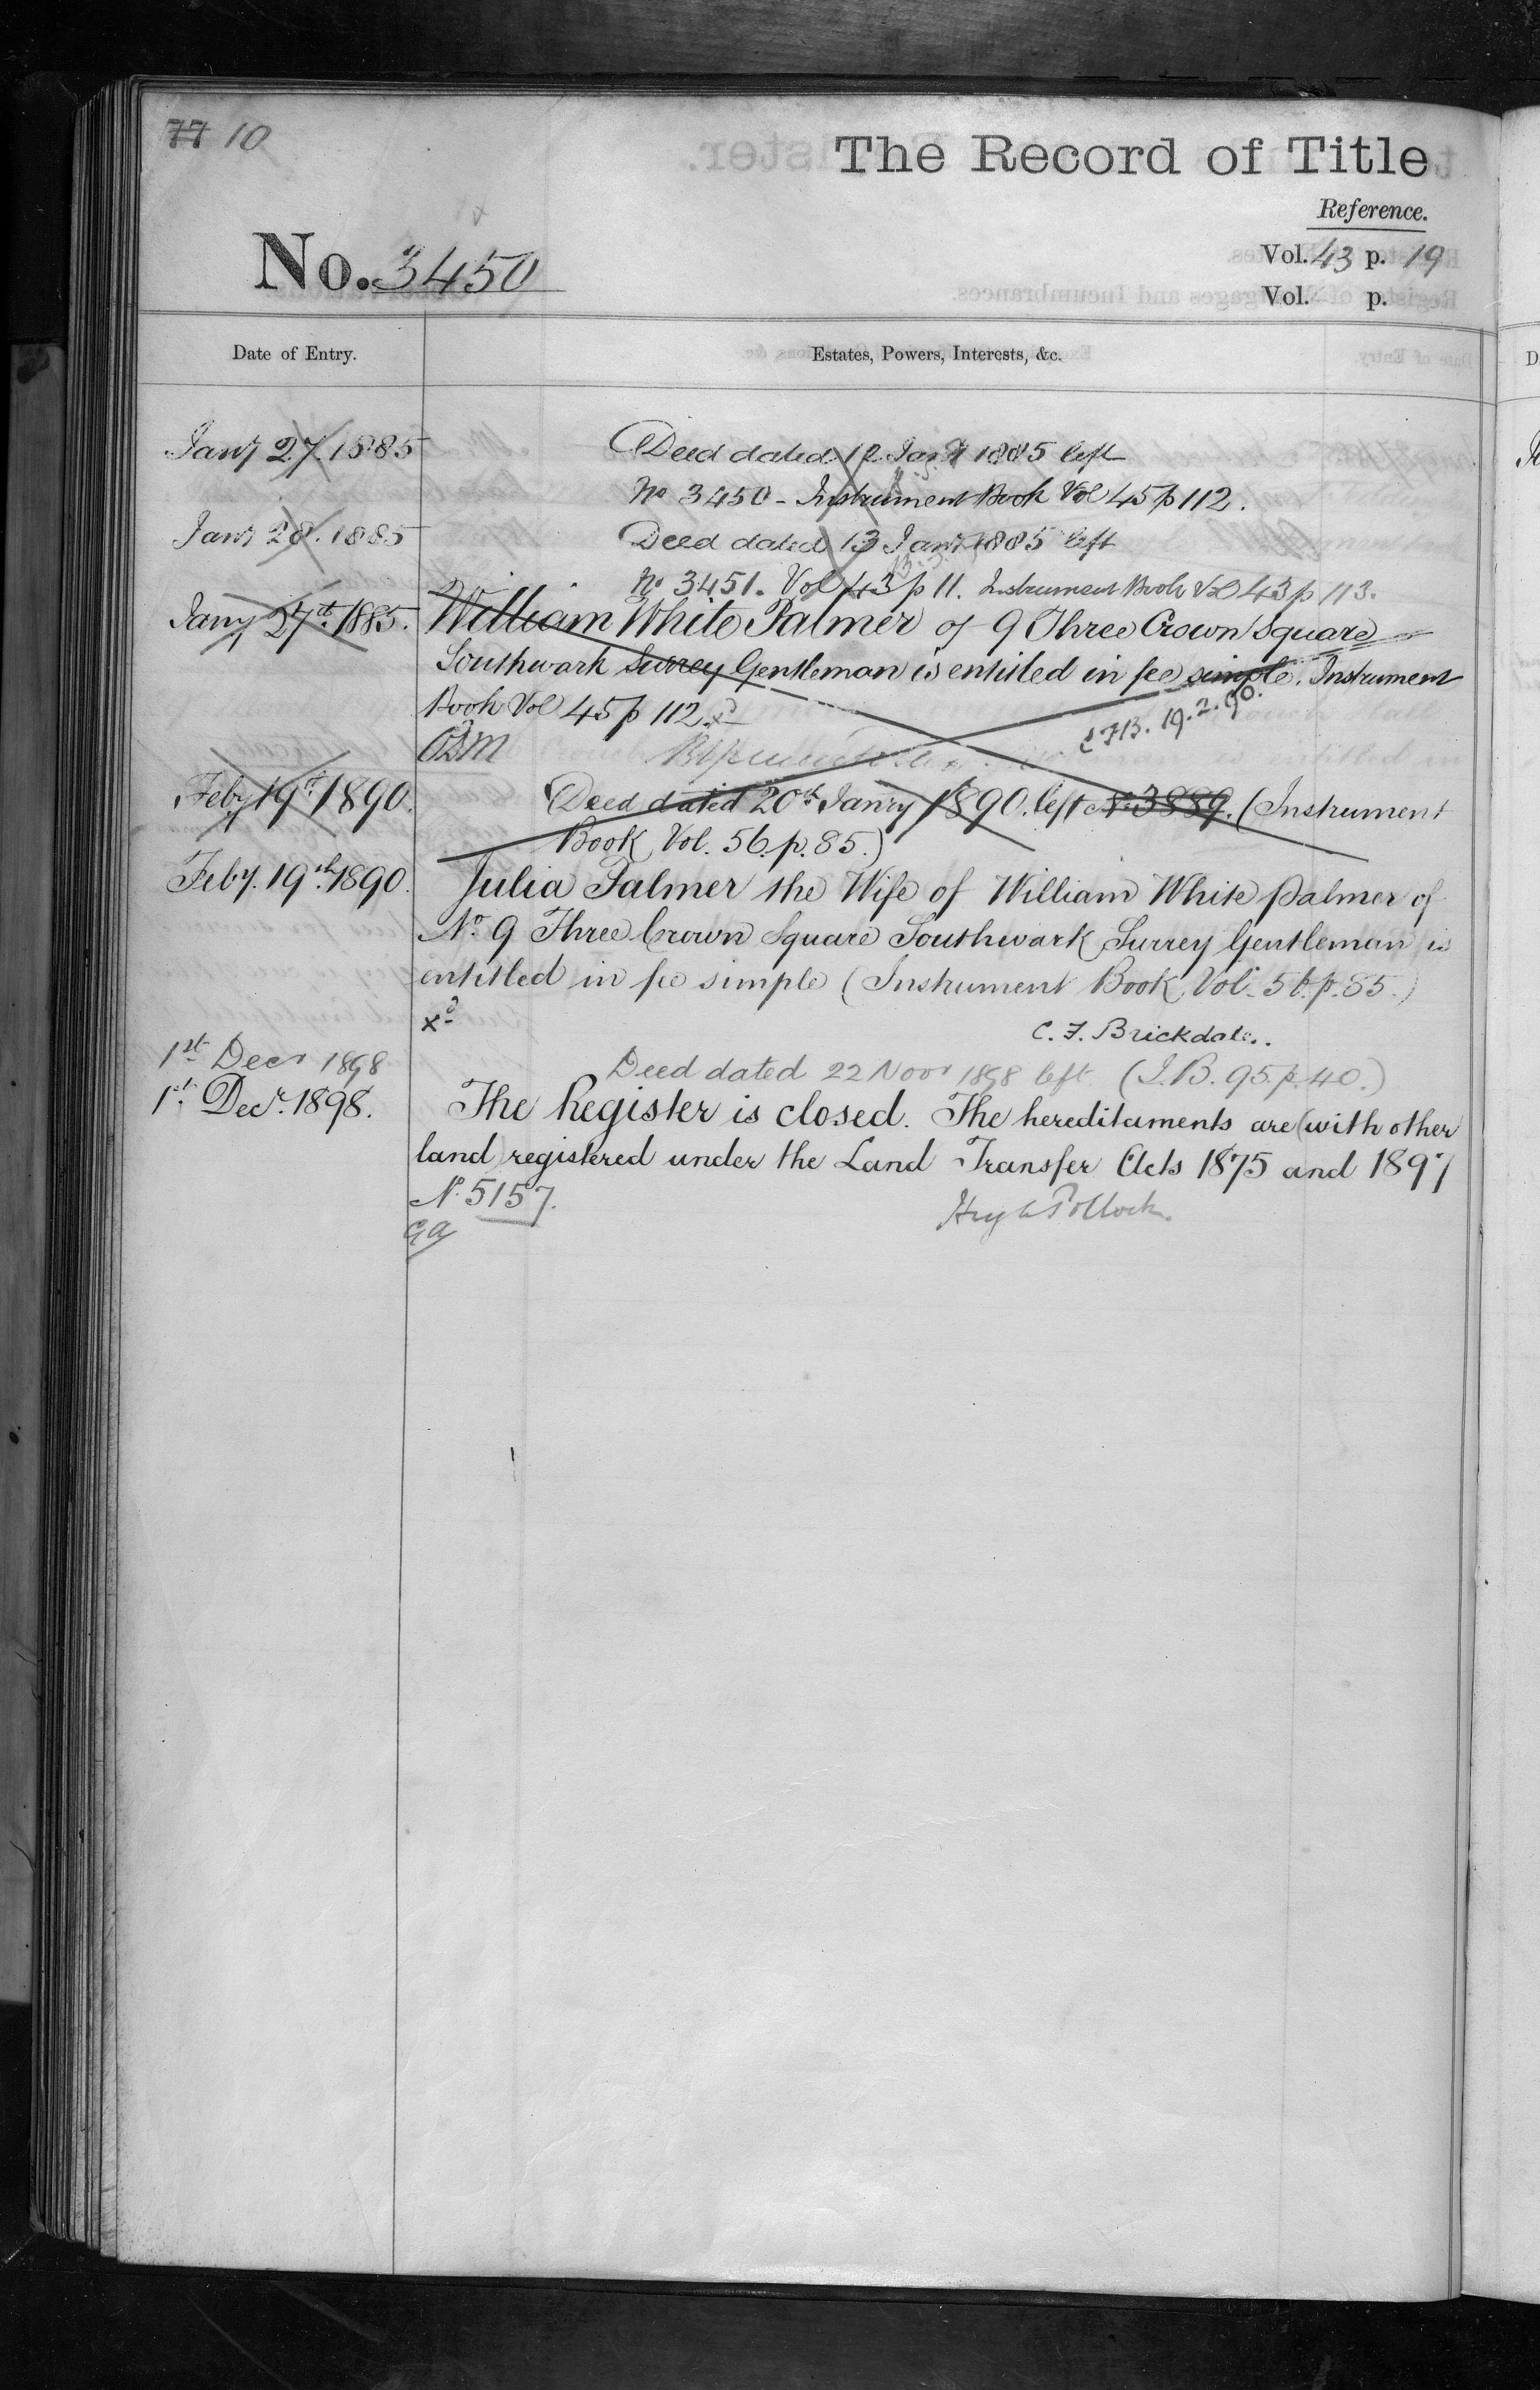 77 10
The Record of Title
Reference.
No. 3450
Vol. 43 p. 19
Vol. p.
Date of Entry.
Estates, Powers, Interests, &c.
Jany 27. 1885
Deed dated 12 Jany 1885 left
No 3450 - Instrument Book Vol 45 p 112.
Jany 28. 1885
Deed dated 13 Jany 1885 left
No 3451. Vol 43 p 11. Instrument Book Vol 43 p 113.
Jany 27th 1885.
William White Palmer of 9 Three Crown Square
Southwark Surrey Gentleman is entitled in fee simple. Instrument
Book Vol 45 p 112. xd
CFB. 19.2.90.
Feby 19th 1890.
Deed dated 20th Janry 1890. left No 3889. (Instrument
Book Vol. 56. p. 85.)
Feby. 19th 1890.
Julia Palmer the Wife of William White Palmer of
No 9 Three Crown Square Southwark Surrey Gentleman is
entitled in fee simple (Instrument Book Vol. 56. p. 85.)
xd
C. F. Brickdale.
1st Decr 1898
Deed dated 22 Novr 1898 left (I.B. 95. p. 40.)
1st Decr. 1898.
The Register is closed. The hereditaments are (with other
land) registered under the Land Transfer Acts 1875 and 1897
No. 5157.
Hugh Pollock.